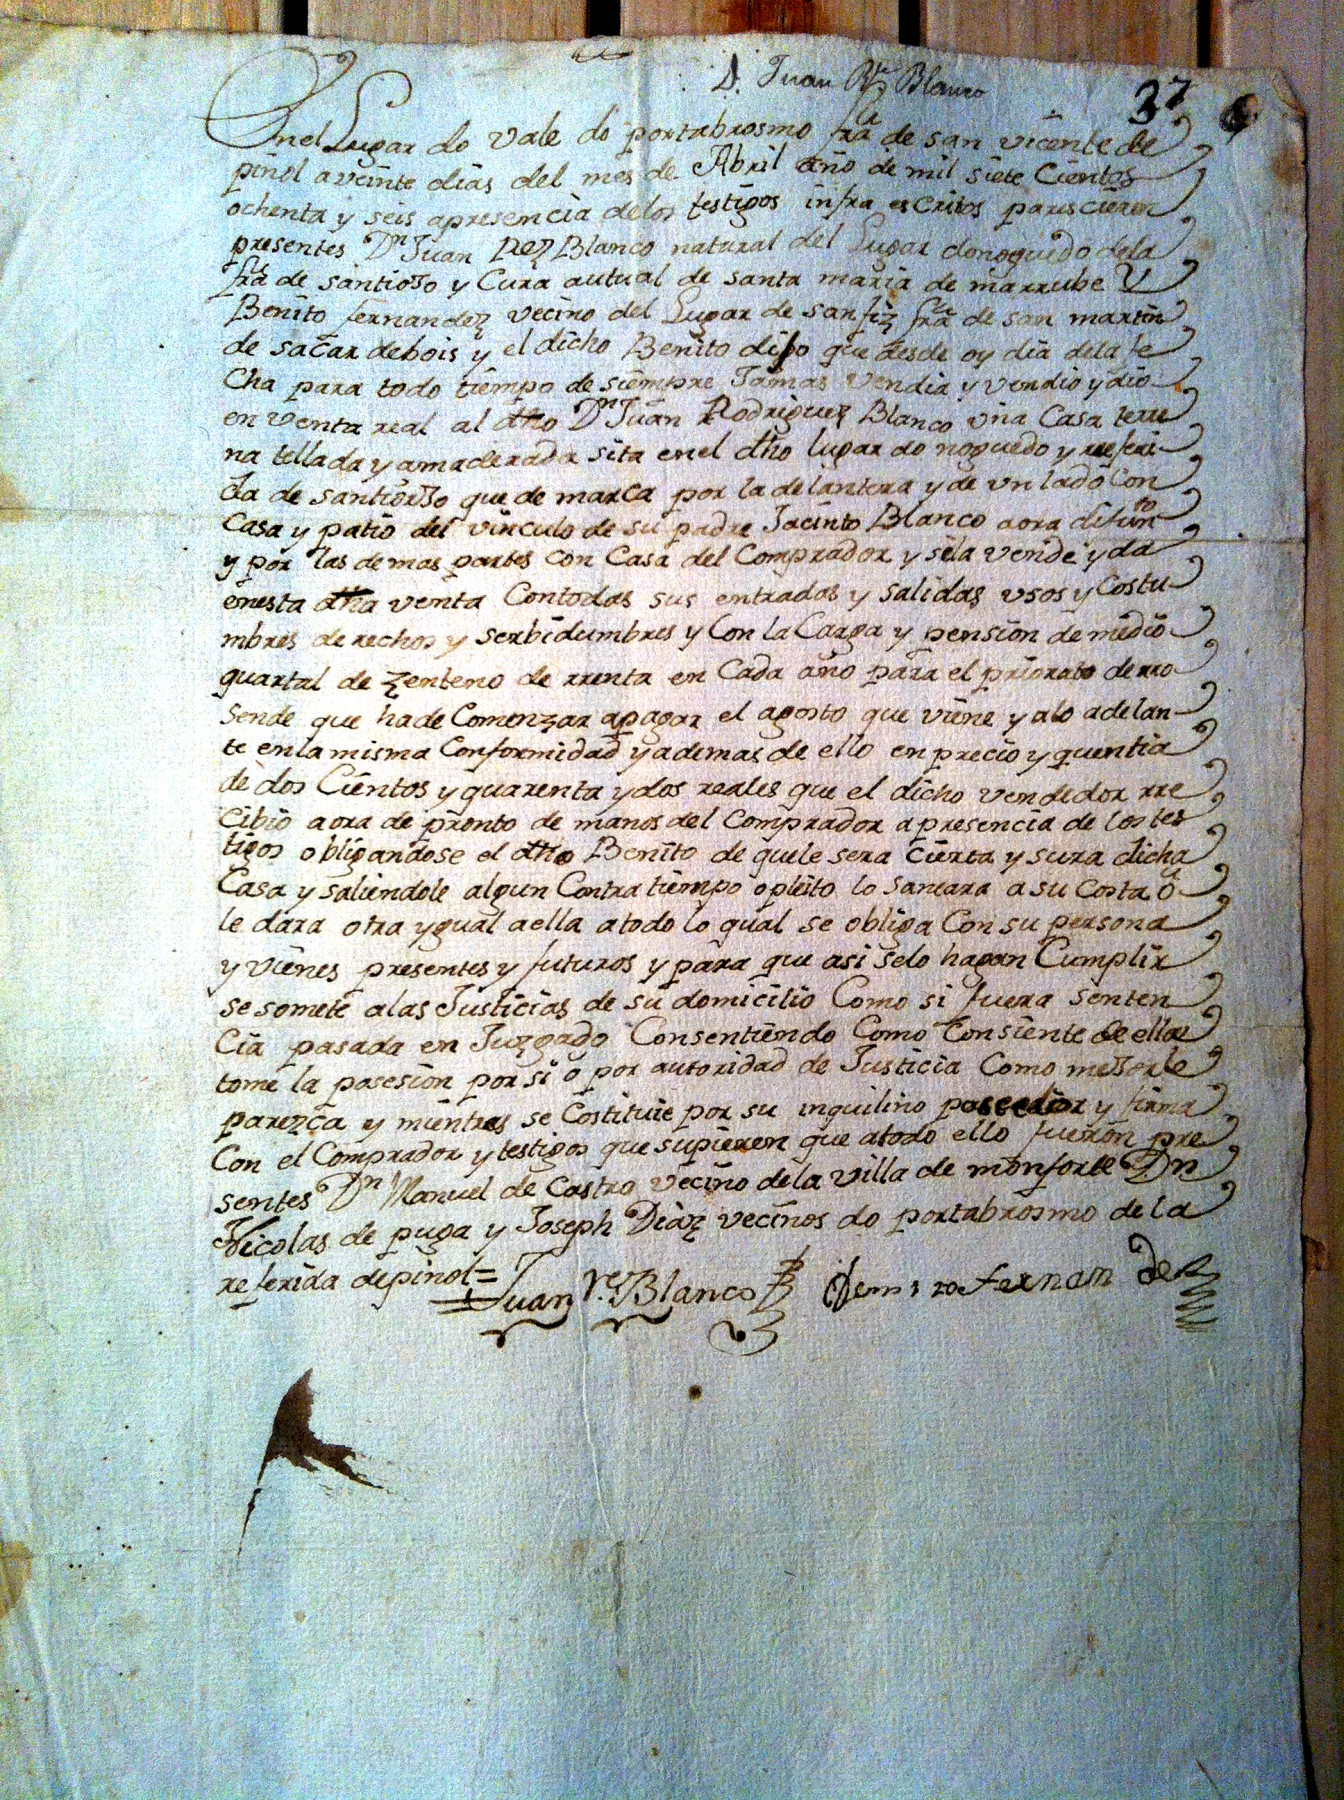 D. Juan Rz Blanco
37
En el Lugar do vale do portabrosmo fra de san vicente de
pinol a veinte dias del mes de Abril año de mil siete Cientos
ochenta y seis apresencia delos testigos infra escritos parescieron
presentes Dn Juan Rez Blanco natural del Lugar donoguedo dela
fra de santioJo y Cura autual de santa maria de marrube Y
Benito fernandez vecino del Lugar de sanfiz fra de san martin
de sacar debois y el dicho Benito dijo que desde oy dia dela fe
Cha para todo tiempo de siempre Jamas vendia y vendio y dio
en venta real al dho Dn Juan Rodriguez Blanco vna Casa terre
na tellada y amaderada sita en el dho lugar do noguedo y referi-
da de santiorJo que de marca por la delantera y de vn lado Con
Casa y patio del vinculo de su padre Jacinto Blanco aora difunto
y por las demas partes con Casa del Comprador y sela vende y da
enesta dha venta Contodas sus entradas y salidas vsos y Costu
mbres derechos y serbidumbres y Con la Carga y pension de medio
quartal de zenteno de rrenta en Cada año para el priorato de rro
sende que hade Comenzar apagar el agosto que viene y alo adelan-
te en la misma Conformidad y ademas de ello en precio y quentia
de dos Cientos y quarenta y dos reales que el dicho vendedor rre
Cibio aora de pronto de manos del Comprador apresencia de los tes
tigos obligandose el dho Benito de quele sera cierta y sura dicha
Casa y saliendole algun Contratiempo opleito lo saneara a su costa ô
le dara otra ygual aella atodo lo qual se obliga Con su persona
y vienes presentes y futuros y para que asi selo hagan Cumplir
se somete alas Justicias de su domicilio Como si fuera senten
Cia pasada en Juzgado Consentiendo Como Consiente de ella
tome la posesion por si o por autoridad de Justicia Como meJorle
parezca y mientras se Costituie por su inquilino poseedor y firma
Con el Comprador y testigos que supieren que atodo ello fueron pre
sentes Dn Manuel de Castro vecino dela villa de monforte Dn
Nicolas de puga y Joseph Diaz vecinos do portabrosmo de la
referida depinol=
Juan Rz Blanco fernan dez